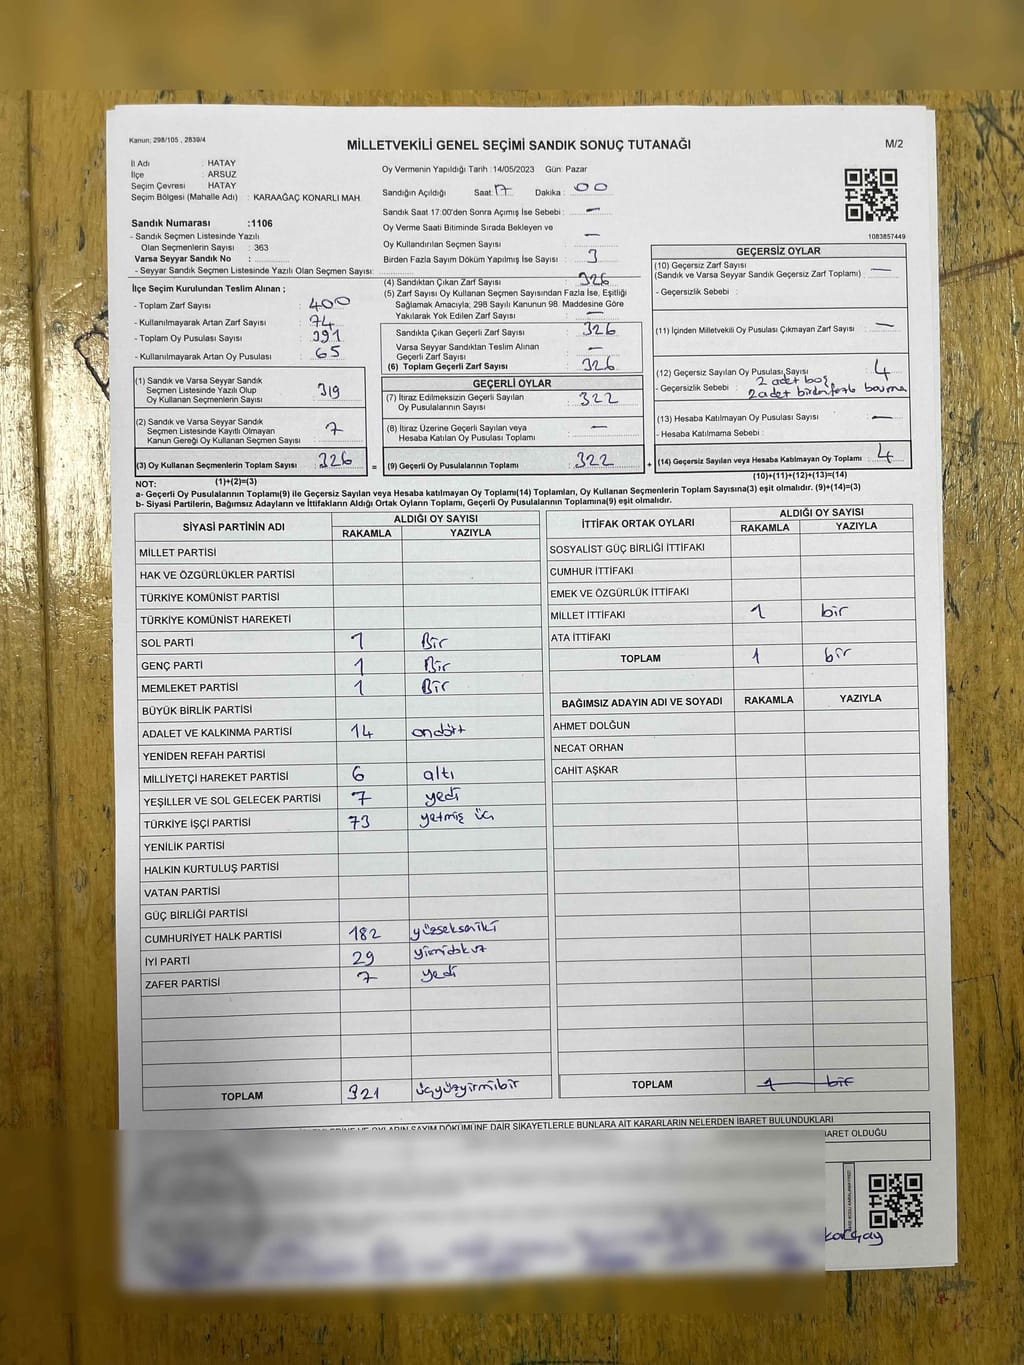 Kanun; 298/105 , 2839/4
MİLLETVEKİLİ GENEL SEÇİMİ SANDIK SONUÇ TUTANAĞI
M/2
İl Adı : HATAY
İlçe : ARSUZ
Seçim Çevresi : HATAY
Seçim Bölgesi (Mahalle Adı) : KARAAĞAÇ KONARLI MAH.
Sandık Numarası :1106
- Sandık Seçmen Listesinde Yazılı
Olan Seçmenlerin Sayısı : 363
Varsa Seyyar Sandık No :
- Seyyar Sandık Seçmen Listesinde Yazılı Olan Seçmen Sayısı:
İlçe Seçim Kurulundan Teslim Alınan ;
- Toplam Zarf Sayısı : 400
- Kullanılmayarak Artan Zarf Sayısı : 74
- Toplam Oy Pusulası Sayısı : 391
- Kullanılmayarak Artan Oy Pusulası : 65
(1) Sandık ve Varsa Seyyar Sandık
Seçmen Listesinde Yazılı Olup
Oy Kullanan Seçmenlerin Sayısı 319
(2) Sandık ve Varsa Seyyar Sandık
Seçmen Listesinde Kayıtlı Olmayan
Kanun Gereği Oy Kullanan Seçmen Sayısı 7
(3) Oy Kullanan Seçmenlerin Toplam Sayısı 326 =
(1)+(2)=(3)
Oy Vermenin Yapıldığı Tarih :14/05/2023 Gün: Pazar
Sandığın Açıldığı Saat: 17 Dakika : 00
Sandık Saat 17:00'den Sonra Açımış İse Sebebi : —
Oy Verme Saati Bitiminde Sırada Bekleyen ve
Oy Kullandırılan Seçmen Sayısı : —
Birden Fazla Sayım Döküm Yapılmış İse Sayısı : 3
(4) Sandıktan Çıkan Zarf Sayısı : 326
(5) Zarf Sayısı Oy Kullanan Seçmen Sayısından Fazla İse, Eşitliği
Sağlamak Amacıyla; 298 Sayılı Kanunun 98. Maddesine Göre
Yakılarak Yok Edilen Zarf Sayısı : —
Sandıkta Çıkan Geçerli Zarf Sayısı : 326
Varsa Seyyar Sandıktan Teslim Alınan
Geçerli Zarf Sayısı : —
(6) Toplam Geçerli Zarf Sayısı : 326
GEÇERLİ OYLAR
(7) İtiraz Edilmeksizin Geçerli Sayılan
Oy Pusulalarının Sayısı : 322
(8) İtiraz Üzerine Geçerli Sayılan veya
Hesaba Katılan Oy Pusulası Toplamı : —
(9) Geçerli Oy Pusulalarının Toplamı : 322 +
1083857449
GEÇERSİZ OYLAR
(10) Geçersiz Zarf Sayısı
(Sandık ve Varsa Seyyar Sandık Geçersiz Zarf Toplamı) : —
- Geçersizlik Sebebi :
(11) İçinden Milletvekili Oy Pusulası Çıkmayan Zarf Sayısı : —
(12) Geçersiz Sayılan Oy Pusulası Sayısı : 4
- Geçersizlik Sebebi : 2 adet boş
2 adet birden fazla basma
(13) Hesaba Katılmayan Oy Pusulası Sayısı : —
- Hesaba Katılmama Sebebi :
(14) Geçersiz Sayılan veya Hesaba Katılmayan Oy Toplamı : 4
(10)+(11)+(12)+(13)=(14)
NOT:
a- Geçerli Oy Pusulalarının Toplamı(9) ile Geçersiz Sayılan veya Hesaba katılmayan Oy Toplamı(14) Toplamları, Oy Kullanan Seçmenlerin Toplam Sayısına(3) eşit olmalıdır. (9)+(14)=(3)
b- Siyasi Partilerin, Bağımsız Adayların ve İttifakların Aldığı Ortak Oyların Toplamı, Geçerli Oy Pusulalarının Toplamına(9) eşit olmalıdır.
SİYASİ PARTİNİN ADI ALDIĞI OY SAYISI
RAKAMLA YAZIYLA
MİLLET PARTİSİ
HAK VE ÖZGÜRLÜKLER PARTİSİ
TÜRKİYE KOMÜNİST PARTİSİ
TÜRKİYE KOMÜNİST HAREKETİ
SOL PARTİ 1 Bir
GENÇ PARTİ 1 Bir
MEMLEKET PARTİSİ 1 Bir
BÜYÜK BİRLİK PARTİSİ
ADALET VE KALKINMA PARTİSİ 14 ondört
YENİDEN REFAH PARTİSİ
MİLLİYETÇİ HAREKET PARTİSİ 6 altı
YEŞİLLER VE SOL GELECEK PARTİSİ 7 yedi
TÜRKİYE İŞÇİ PARTİSİ 73 yetmiş üç
YENİLİK PARTİSİ
HALKIN KURTULUŞ PARTİSİ
VATAN PARTİSİ
GÜÇ BİRLİĞİ PARTİSİ
CUMHURİYET HALK PARTİSİ 182 yüzsekseniki
İYİ PARTİ 29 yirmidokuz
ZAFER PARTİSİ 7 yedi
TOPLAM 321 üçyüzyirmibir
İTTİFAK ORTAK OYLARI ALDIĞI OY SAYISI
RAKAMLA YAZIYLA
SOSYALİST GÜÇ BİRLİĞİ İTTİFAKI
CUMHUR İTTİFAKI
EMEK VE ÖZGÜRLÜK İTTİFAKI
MİLLET İTTİFAKI 1 bir
ATA İTTİFAKI
TOPLAM 1 bir
BAĞIMSIZ ADAYIN ADI VE SOYADI RAKAMLA YAZIYLA
AHMET DOLĞUN
NECAT ORHAN
CAHİT AŞKAR
TOPLAM 1 bir
OYLARIN SAYIM DÖKÜMÜNE DAİR ŞİKAYETLERLE BUNLARA AİT KARARLARIN NELERDEN İBARET BULUNDUKLARI
İBARET OLDUĞU